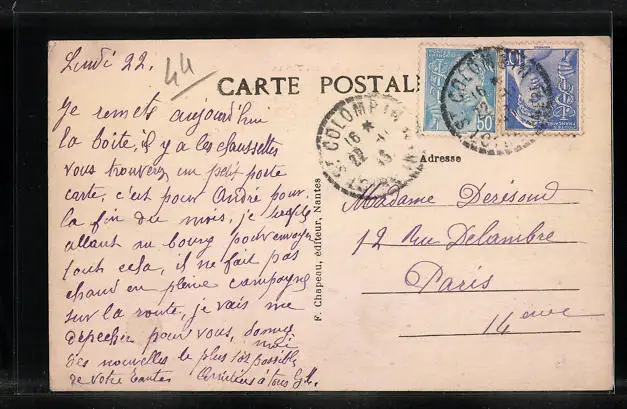 Lundi 22.
44
CARTE POSTALE
Je remets aujourd'hui
la boîte, il y a les chaussettes
vous trouverez un petit porte
carte, c'est pour André pour
la fin du mois, je
allant au bourg pour envoyer
tout cela, il ne fait pas
chaud en pleine campagne
sur la route, je vais me
dépêcher pour vous, donnez
moi
des nouvelles le plus tôt possible
de votre tantes à tous
F. Chapeau, éditeur, Nantes
ST COLOMBIN
16 *
22
45
50
Adresse
Madame Derésond
12 Rue Delambre
Paris
14 eme